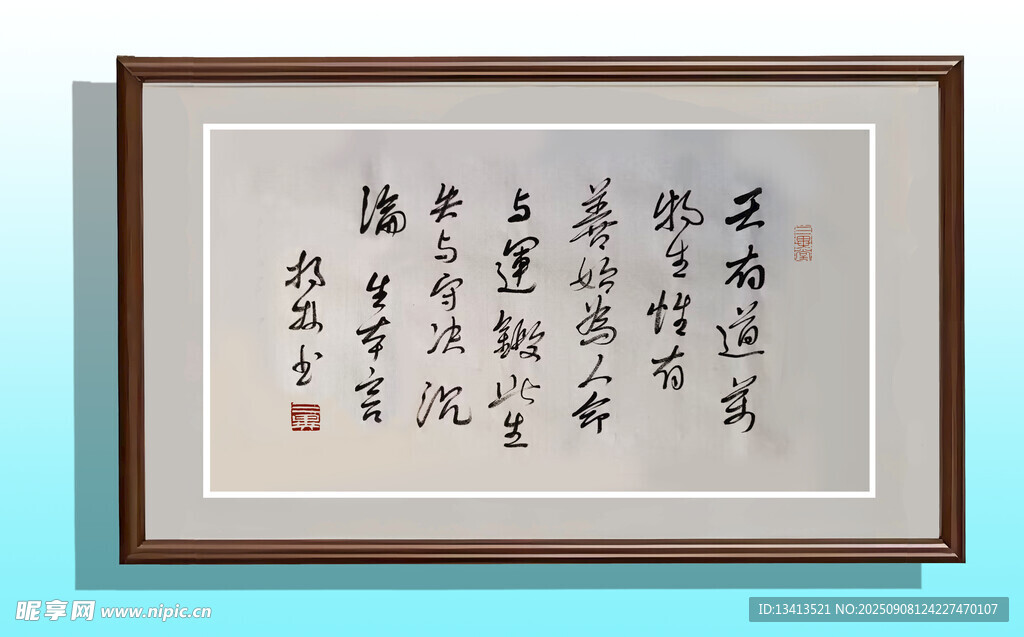 天有道萬
物生性有
善始為人命
与運鍛此生
失与守决沉
淪 生本言
楊林书
昵享网 www.nipic.cn
ID:13413521 NO:20250908124227470107